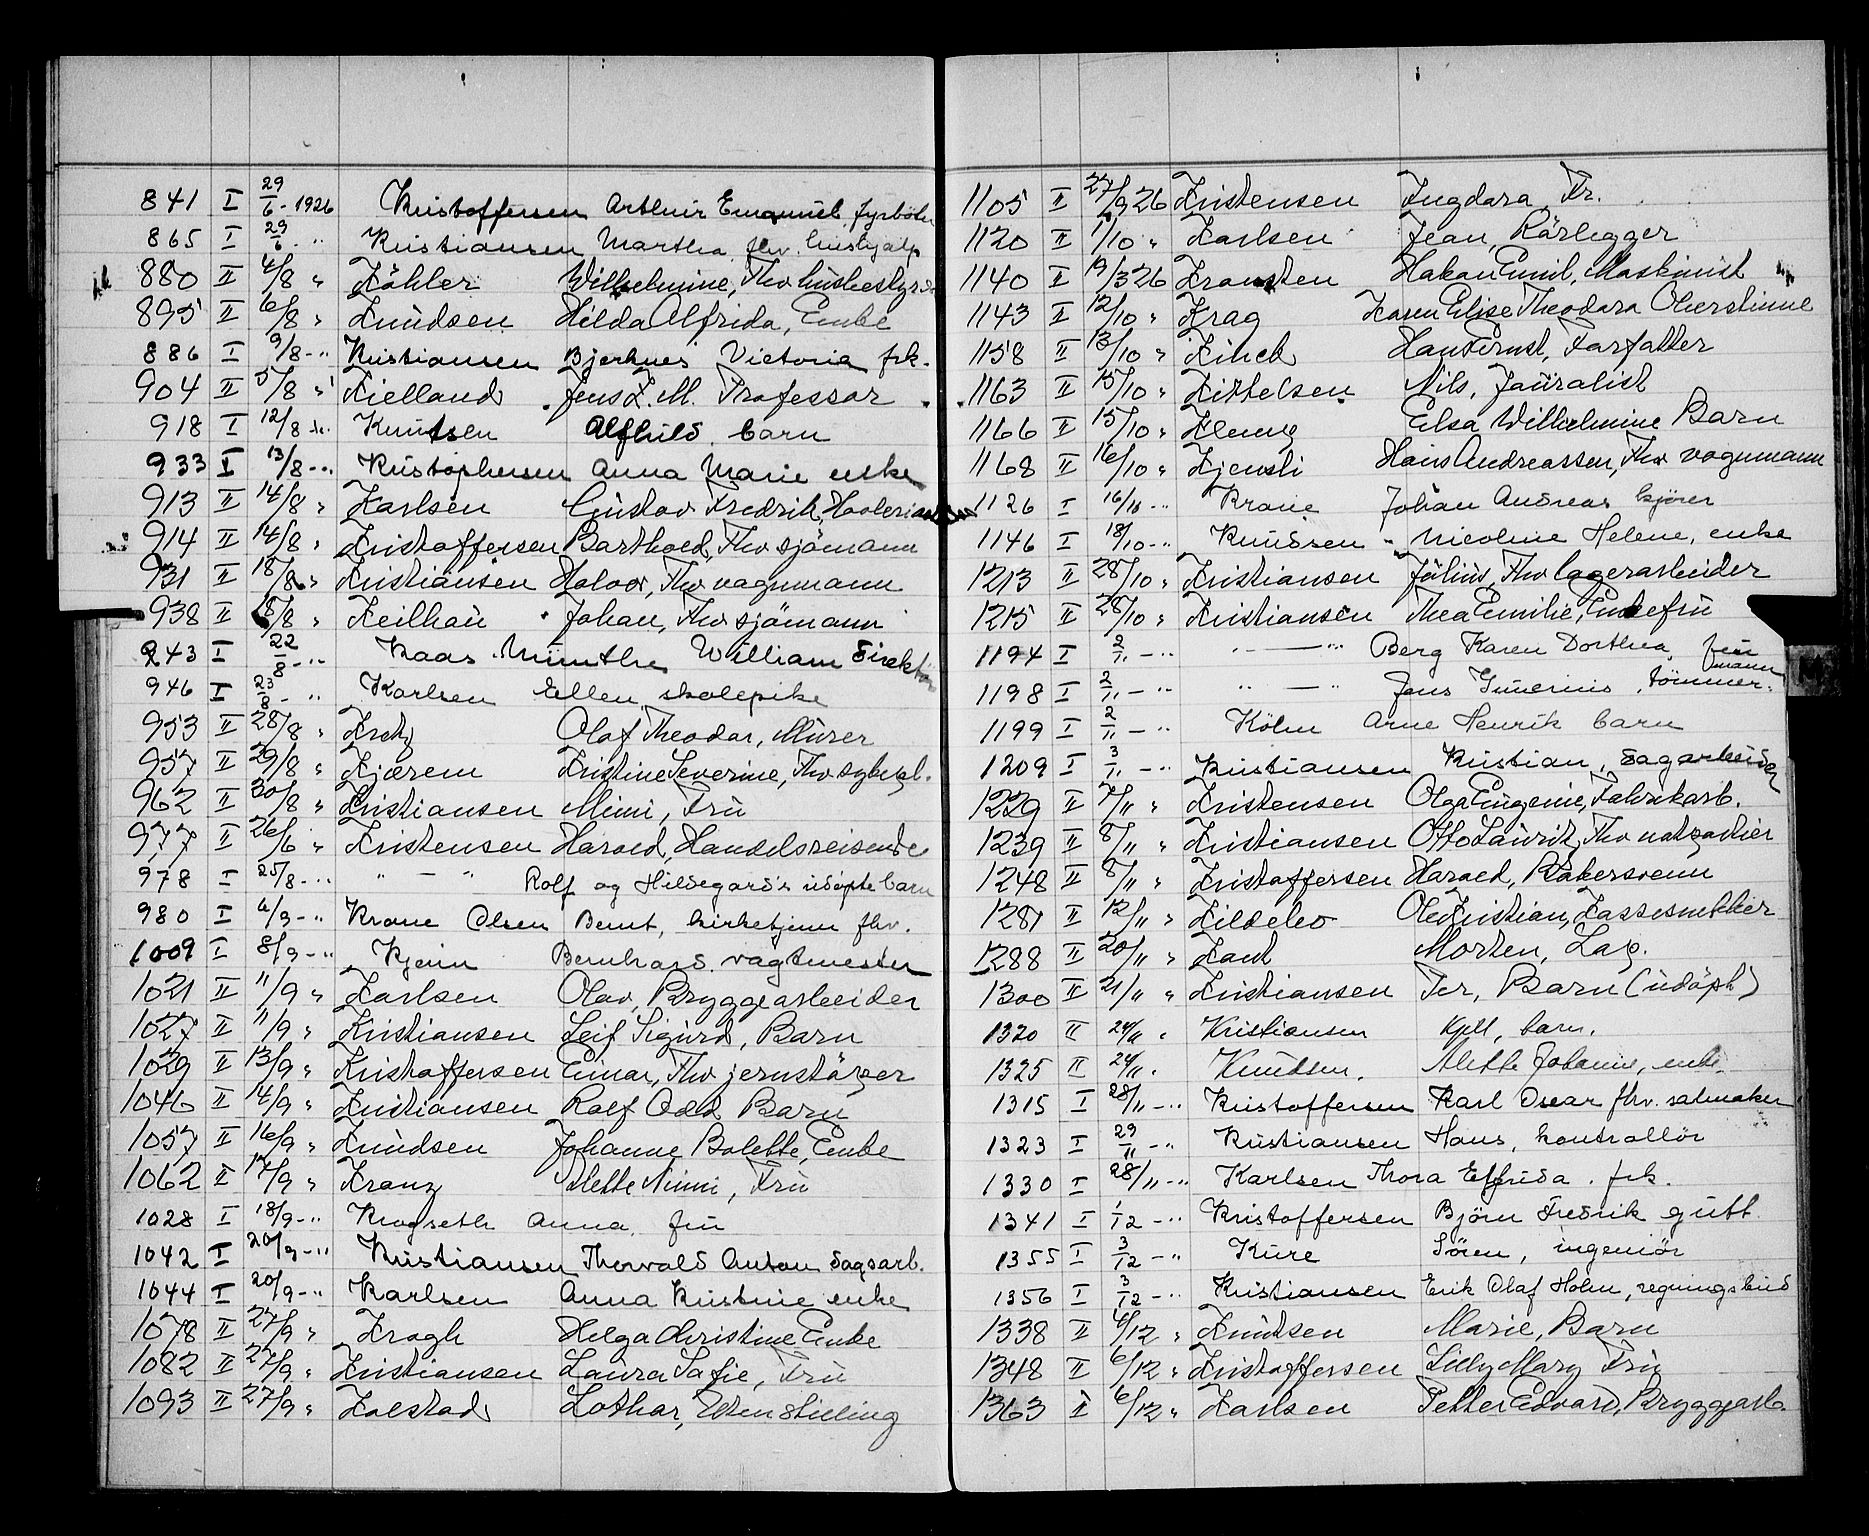 841 I 29/6 - 1926 Kristoffersen Arthur Emanuel fyrböter
865 I 29/6 - " Kristiansen Martha fhv. hushjälp
880 II 4/8 " Köhler Wilhelmine, Fhv husbestyr
895 II 6/8 " Knudsen Hilda Alfrida, Enke
886 I 9/8 - " Kristiansen Bjerknes Victoria frk.
904 II 5/8 " Kielland Jens Z. M. Professor
918 I 12/8 - " Knutsen Alfhild barn
933 I 13/8 - " Kristophersen Anna Marie enke
913 II 14/8 " Karlsen Gustav Fredrik,
914 II 14/8 " Kristoffersen Barthold, Fhv sjömann
931 II 18/8 " Kristiansen Halvor, Fhv vognmann
938 II 18/8 " Keilhau Johan, Fhv sjömann
943 I 22/8 - " Kaas Munthe William Direktör
946 I 23/8 - " Karlsen Ellen skolepike
953 II 28/8 " Olaf Theodor, Murer
957 II 29/8 " Kjærem Kristine Severine, Fhv
962 II 30/8 " Kristiansen Mimi, Fru
977 II 26/6 " Kristensen Harald, Handelsreisende
978 I 25/8 - " " - " Rolf og Hildegard's udöpte barn
980 I 6/9 - " Krane Olsen Bernt, kirketjener fhv.
1009 I 8/9 - " Bernhard vagtmester
1021 II 11/9 " Karlsen Olav, Bryggearbeider
1027 II 11/9 " Kristiansen Leif Sigurd, Barn
1029 II 13/9 " Kristoffersen Einar, Fhv jernstöper
1046 II 14/9 " Kristiansen Rolf Odd Barn
1057 II 16/9 " Knudsen Johanne Bolette, Enke
1062 II 17/9 " Kranz Alette Mimi, Fru
1028 I 18/9 - " Krogseth Anna fru
1042 I 20/9 - " Kristiansen Thorvald Anton Sagarb.
1044 I 20/9 - " Karlsen Anna Kristine enke
1078 II 27/9 " Krogh Helga Christine Enke
1082 II 27/9 " Kristiansen Laura Sofie, Fru
1093 II 27/9 " Kolstad Lothar, Uten stilling
1105 II 27/9 26 Kristensen Ingdora, Fr.
1120 II 1/10 " Karlsen Jean, Rörlegger
1140 II 19/3 26 Kronsten Hakon Emil, Maskinist
1143 II 12/10 " Krag Karen Elise Theodora Oberstinne
1158 II 13/10 " Kinck Hans Ernst, Forfatter
1163 II 15/10 " Kittelsen Nils, Journalist
1166 II 15/10 " Elsa Wilhelmine Barn
1168 II 16/10 " Kjensli Hans Andreassen, Fhv vognmann
1126 I 16/10 - " Krane Johan Andreas kjörer
1146 I 18/10 - " Knudsen Nicoline Helene, enke
1213 II 28/10 " Kristiansen Julius, Fhv lagerarbeider
1215 II 28/10 " Kristiansen Thea Emilie, Enkefru
1194 I 2/11 - " " - " Berg Karen Dorthea, fru
1198 I 2/11 - " " - " Jens, tömmermann
1199 I 2/11 - " Kölm Arne Henrik barn
1209 I 3/11 - " Kristiansen Kristian, Sagarbeider
1229 II 7/11 " Kristensen Olga Eugenie, Fabrikarb.
1239 II 8/11 " Kristiansen Otto Lauritz, Fhv natportier
1248 II 8/11 " Kristoffersen Harald, Bakersvenn
1281 II 12/11 " Kildebo Ole Kristian, Kassesnekker
1288 II 20/11 " Morten,
1300 II 21/11 " Kristiansen Per, Barn (udöpt)
1320 II 24/11 " Kristiansen Kjell, barn.
1325 II 24/11 " Knudsen. Alette Johanne, enke.
1315 I 28/11 - " Kristoffersen Karl Oscar fhv. salmaker
1323 I 29/11 - " Kristiansen Hans, kontrollör
1330 I 28/11 - " Karlsen Thora Elfrida. frk.
1341 I 1/12 - " Kristoffersen Björn Fredrik gutt
1355 I 3/12 - " Kure Sören, ingeniör
1356 I 3/12 - " Kristiansen Erik Olaf Holm, regningsbud
1338 II 6/12 " Knudsen Marie, Barn
1348 II 6/12 " Kristoffersen Lilly Mary Fru
1363 II 6/12 " Karlsen Petter Edvard, Bryggearb.